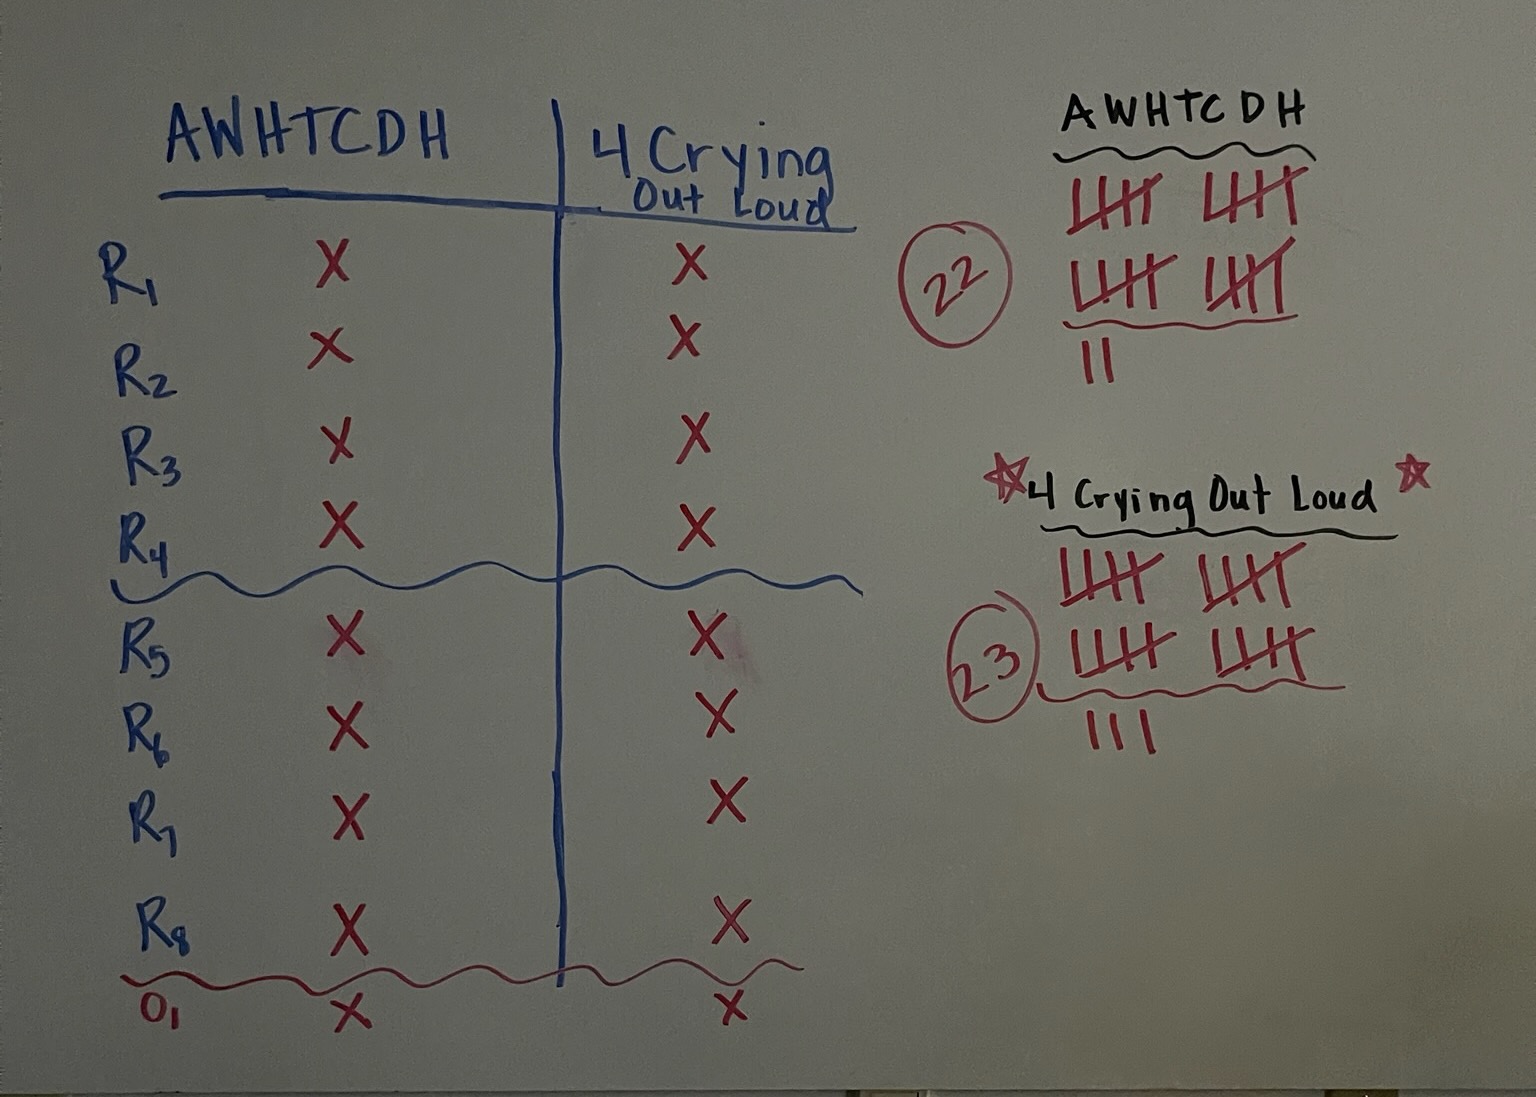 AWHTCDH
4 Crying
Out Loud
R1 X X
R2 X X
R3 X X
R4 X X
R5 X X
R6 X X
R7 X X
R8 X X
O1 X X
AWHTCDH
22
4 Crying Out Loud
23